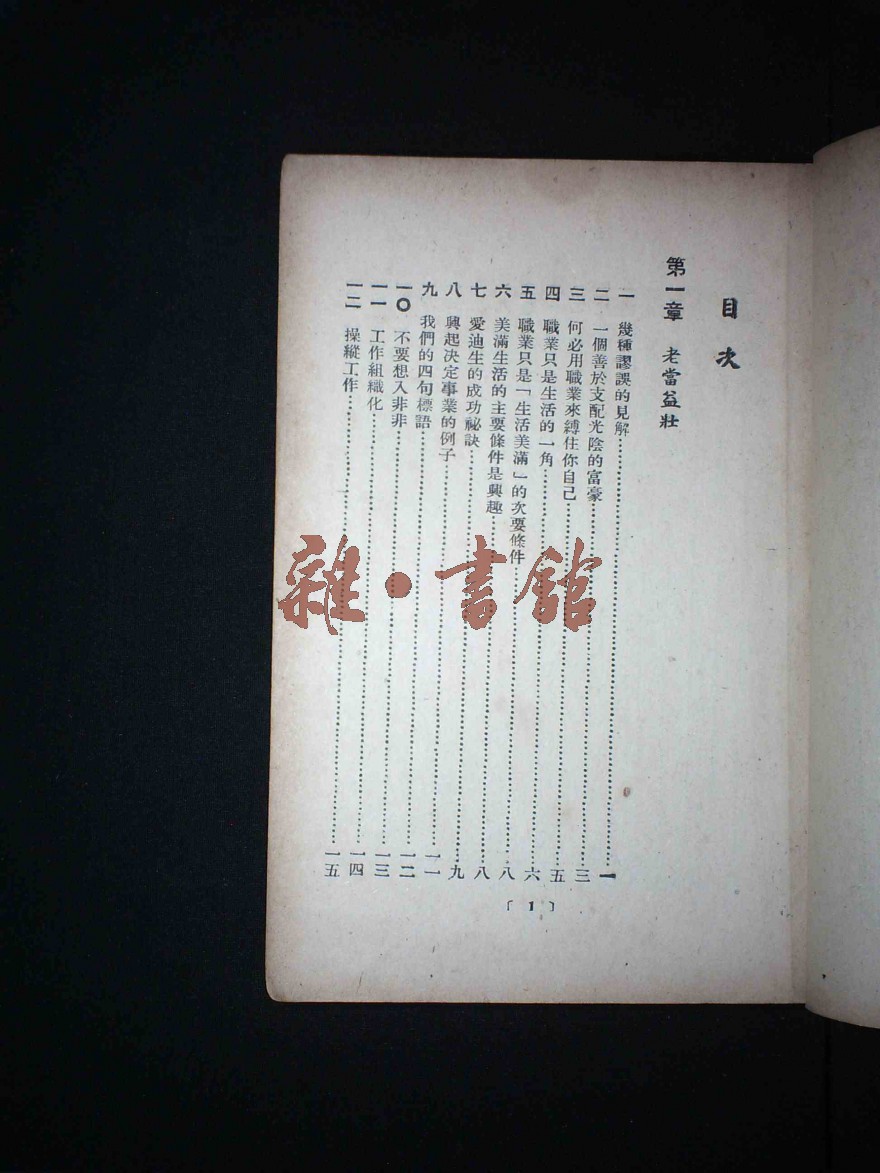 目次
第一章 老當益壯
一 幾種謬誤的見解……一
二 一個善於支配光陰的富豪……三
三 何必用職業來縛住你自己……五
四 職業只是生活的一角……六
五 職業只是「生活美滿」的次要條件……八
六 美滿生活的主要條件是興趣……八
七 愛迪生的成功祕訣……九
八 興起決定事業的例子……一一
九 我們的四句標語……一二
一〇 不要想入非非……一三
一一 工作組織化……一四
一二 操縱工作……一五
〔1〕
雜·書館